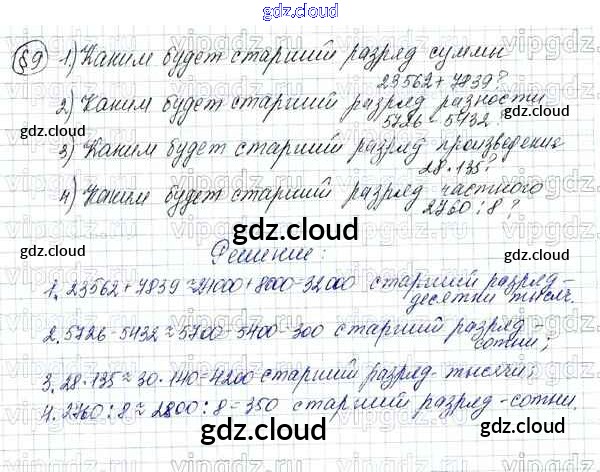 gdz.cloud
§9 1) Каким будет старший разряд суммы
23562 + 7839?
2) Каким будет старший разряд разности
5726 - 5432?
gdz.cloud
gdz.cloud
3) Каким будет старший разряд произведения
28 · 135?
4) Каким будет старший разряд частного
2760 : 8?
gdz.cloud
Решение:
1. 23562 + 7839 ≈ 24000 + 8000 = 32000 старший разряд -
десятки тысяч.
gdz.cloud
gdz.cloud
2. 5726 - 5432 ≈ 5700 - 5400 = 300 старший разряд -
сотни;
3. 28 · 135 ≈ 30 · 140 = 4200 старший разряд - тысячи;
gdz.cloud
gdz.cloud
4. 2760 : 8 ≈ 2800 : 8 = 350 старший разряд - сотни.
gdz.cloud
gdz.cloud